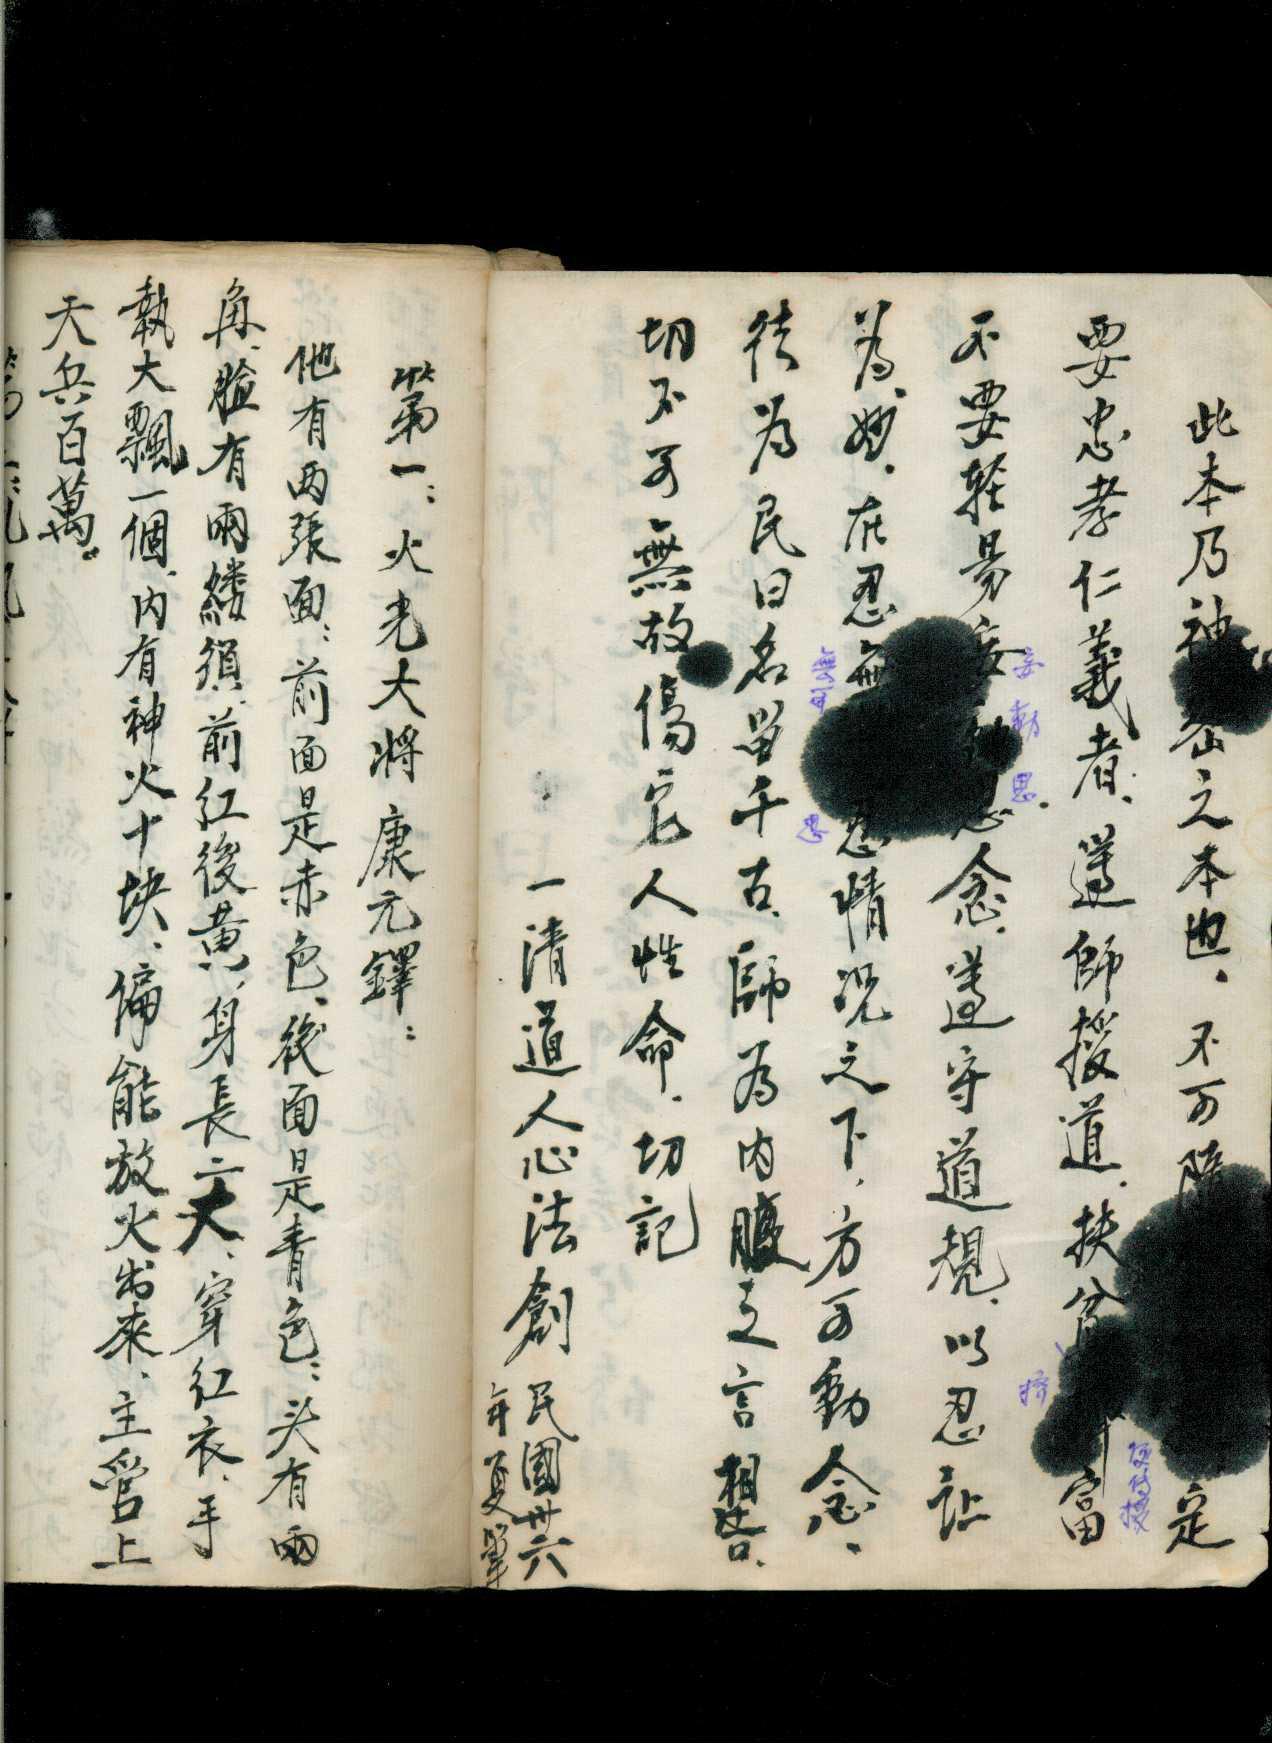 此本乃神之本也、不可定
要忠孝仁義者、遵師授道、扶富
不要輕易妄念、遵守道規、以忍讓
為妙、在忍無忍情況之下、方可動念、
徒為民曰名留千古、師為内腹之言相告、
切不可無故傷它人性命、切記
一清道人心法創 民國卅六
年夏筆
妄動思
無可
忍
濟
第一：火光大將康元鐸：
他有两張面：前面是赤色、後面是青色：头有兩
角、臉有兩縷須、前紅後黄、身長二丈、穿紅衣、手
執大飄一個、内有神火十块、偏能放火出來、主管上
天兵百萬。